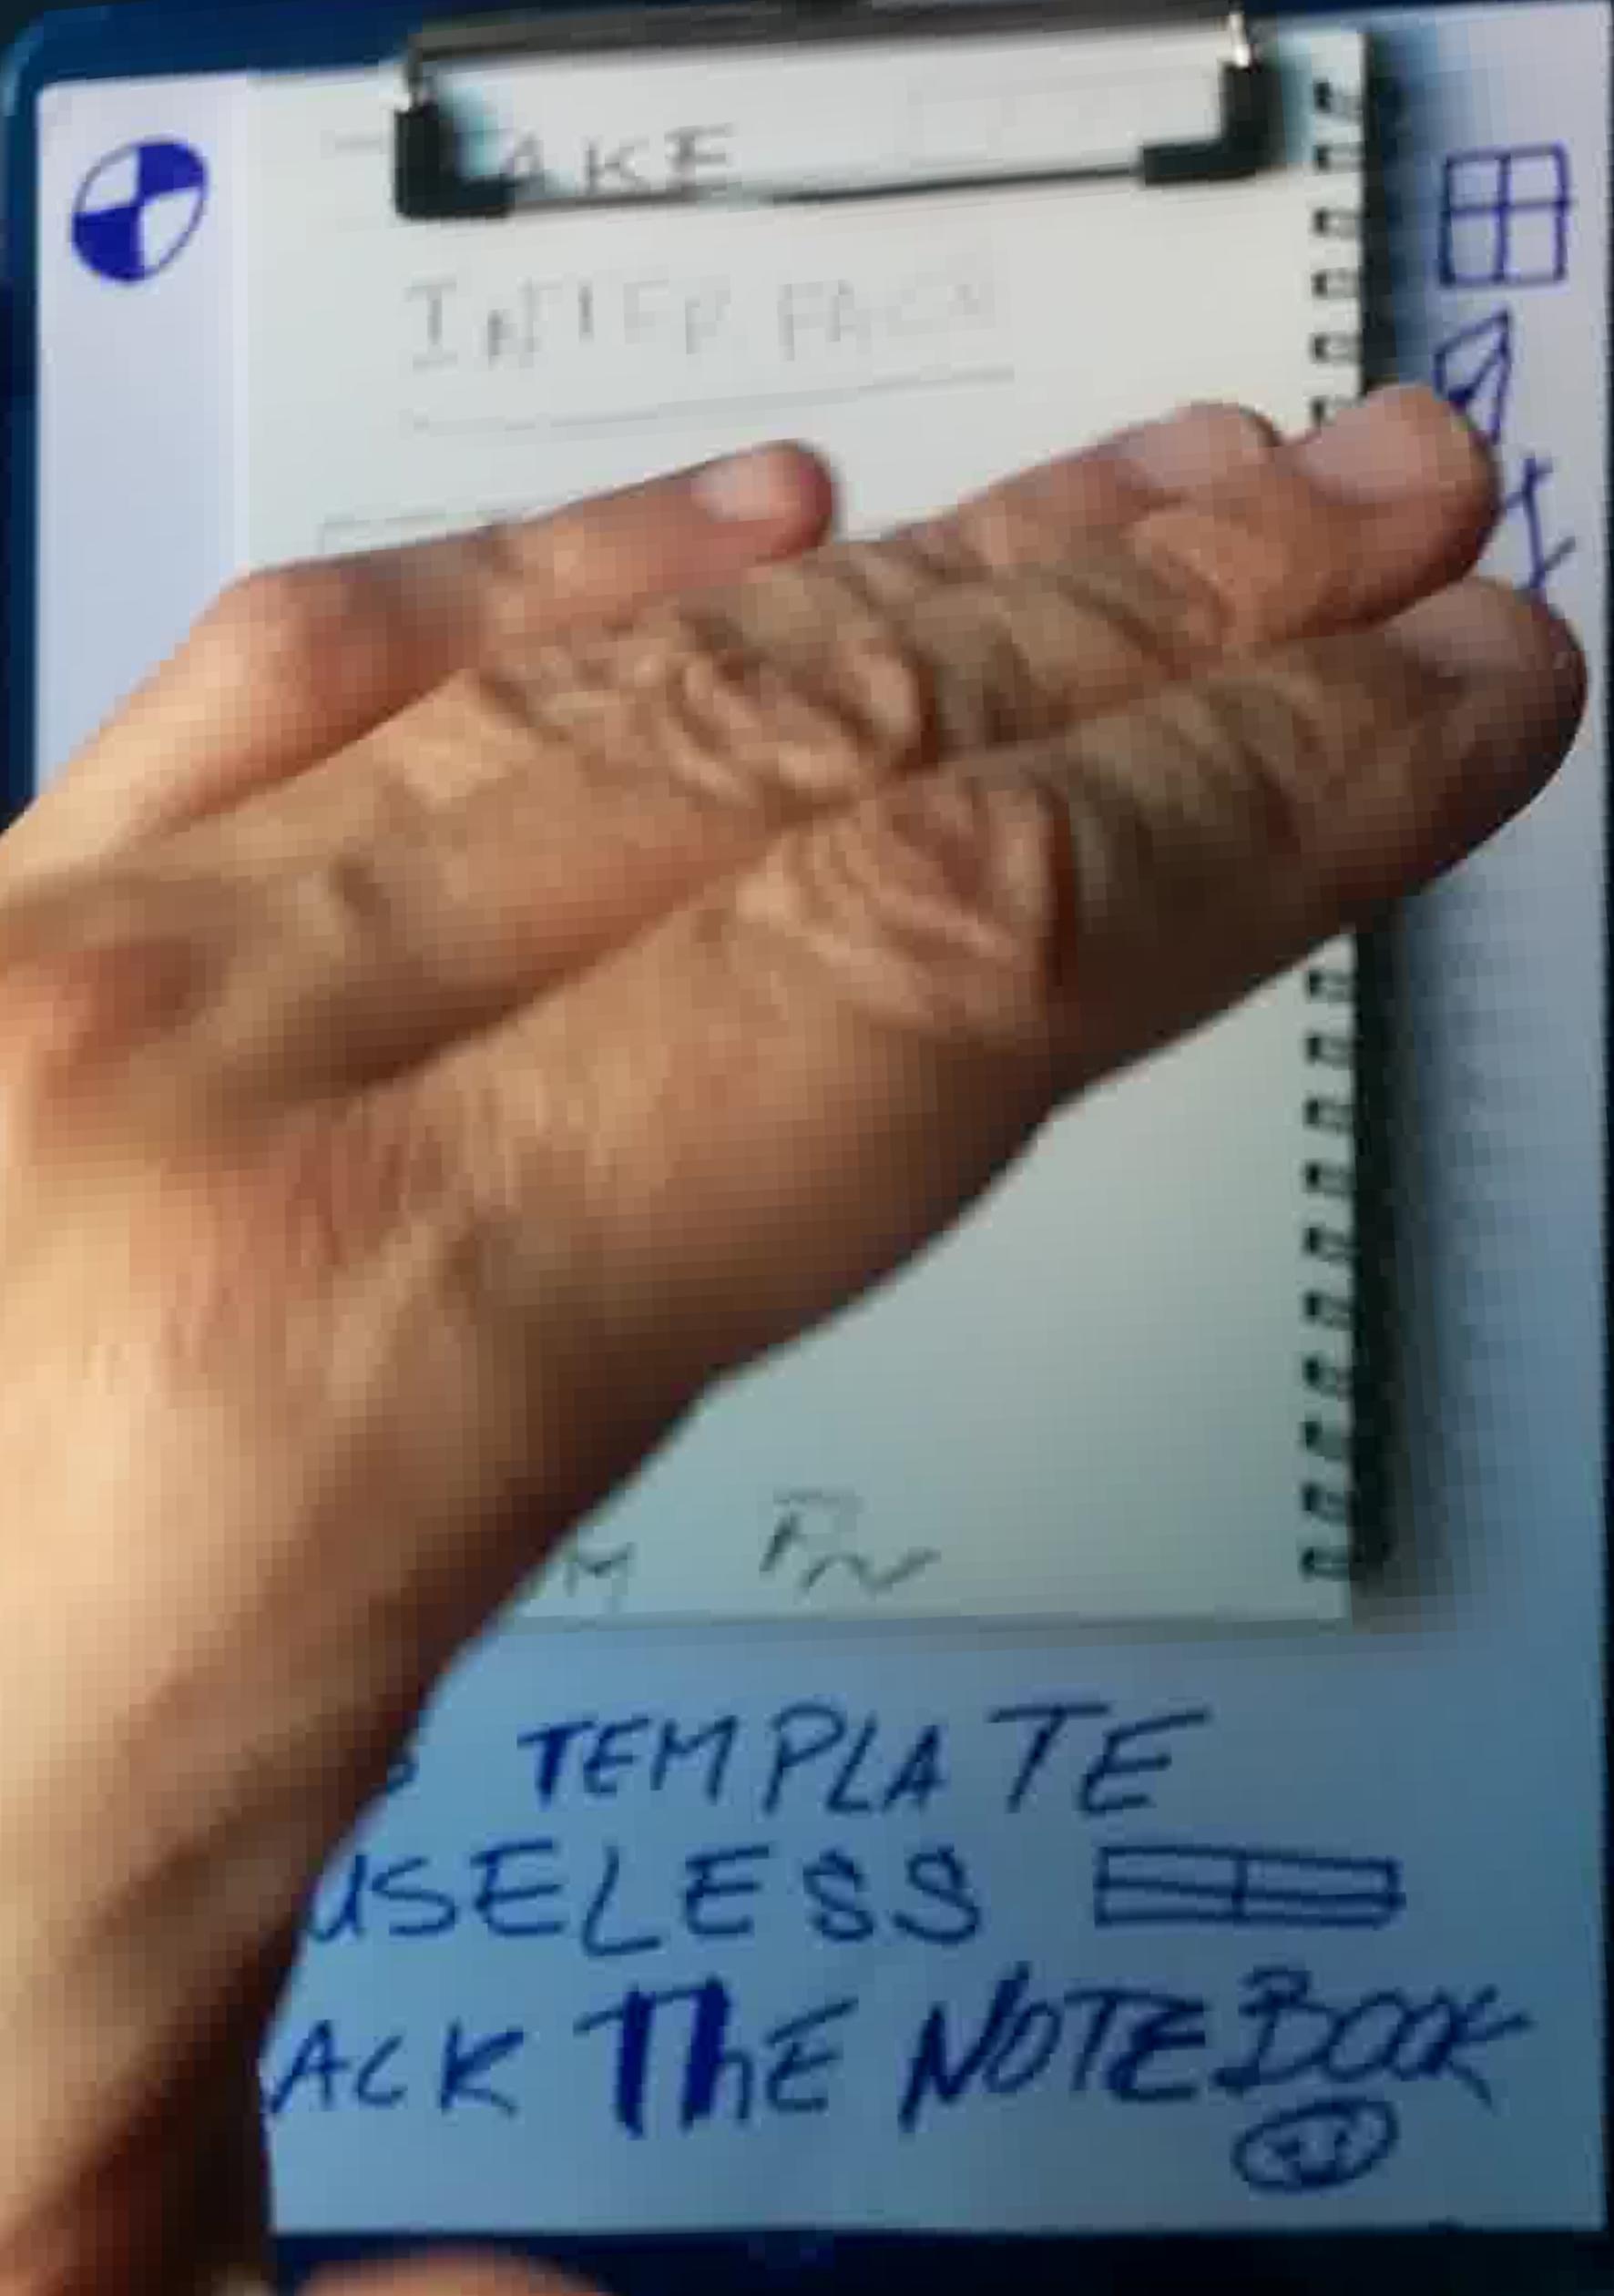 AKE
INTERFACE
TEMPLATE
USELESS
ACK ThE NOTEBOOK